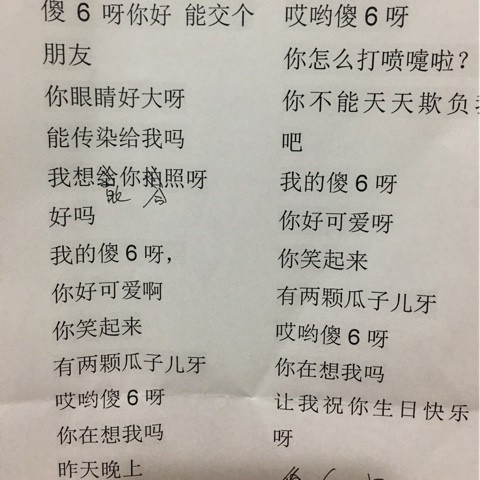 傻 6 呀你好 能交个
朋友
你眼睛好大呀
能传染给我吗
我想给你拍照呀
好吗
我的傻 6 呀，
你好可爱啊
你笑起来
有两颗瓜子儿牙
哎哟傻 6 呀
你在想我吗
昨天晚上
哎哟傻 6 呀
你怎么打喷嚏啦？
你不能天天欺负
吧
我的傻 6 呀
你好可爱呀
你笑起来
有两颗瓜子儿牙
哎哟傻 6 呀
你在想我吗
让我祝你生日快乐
呀